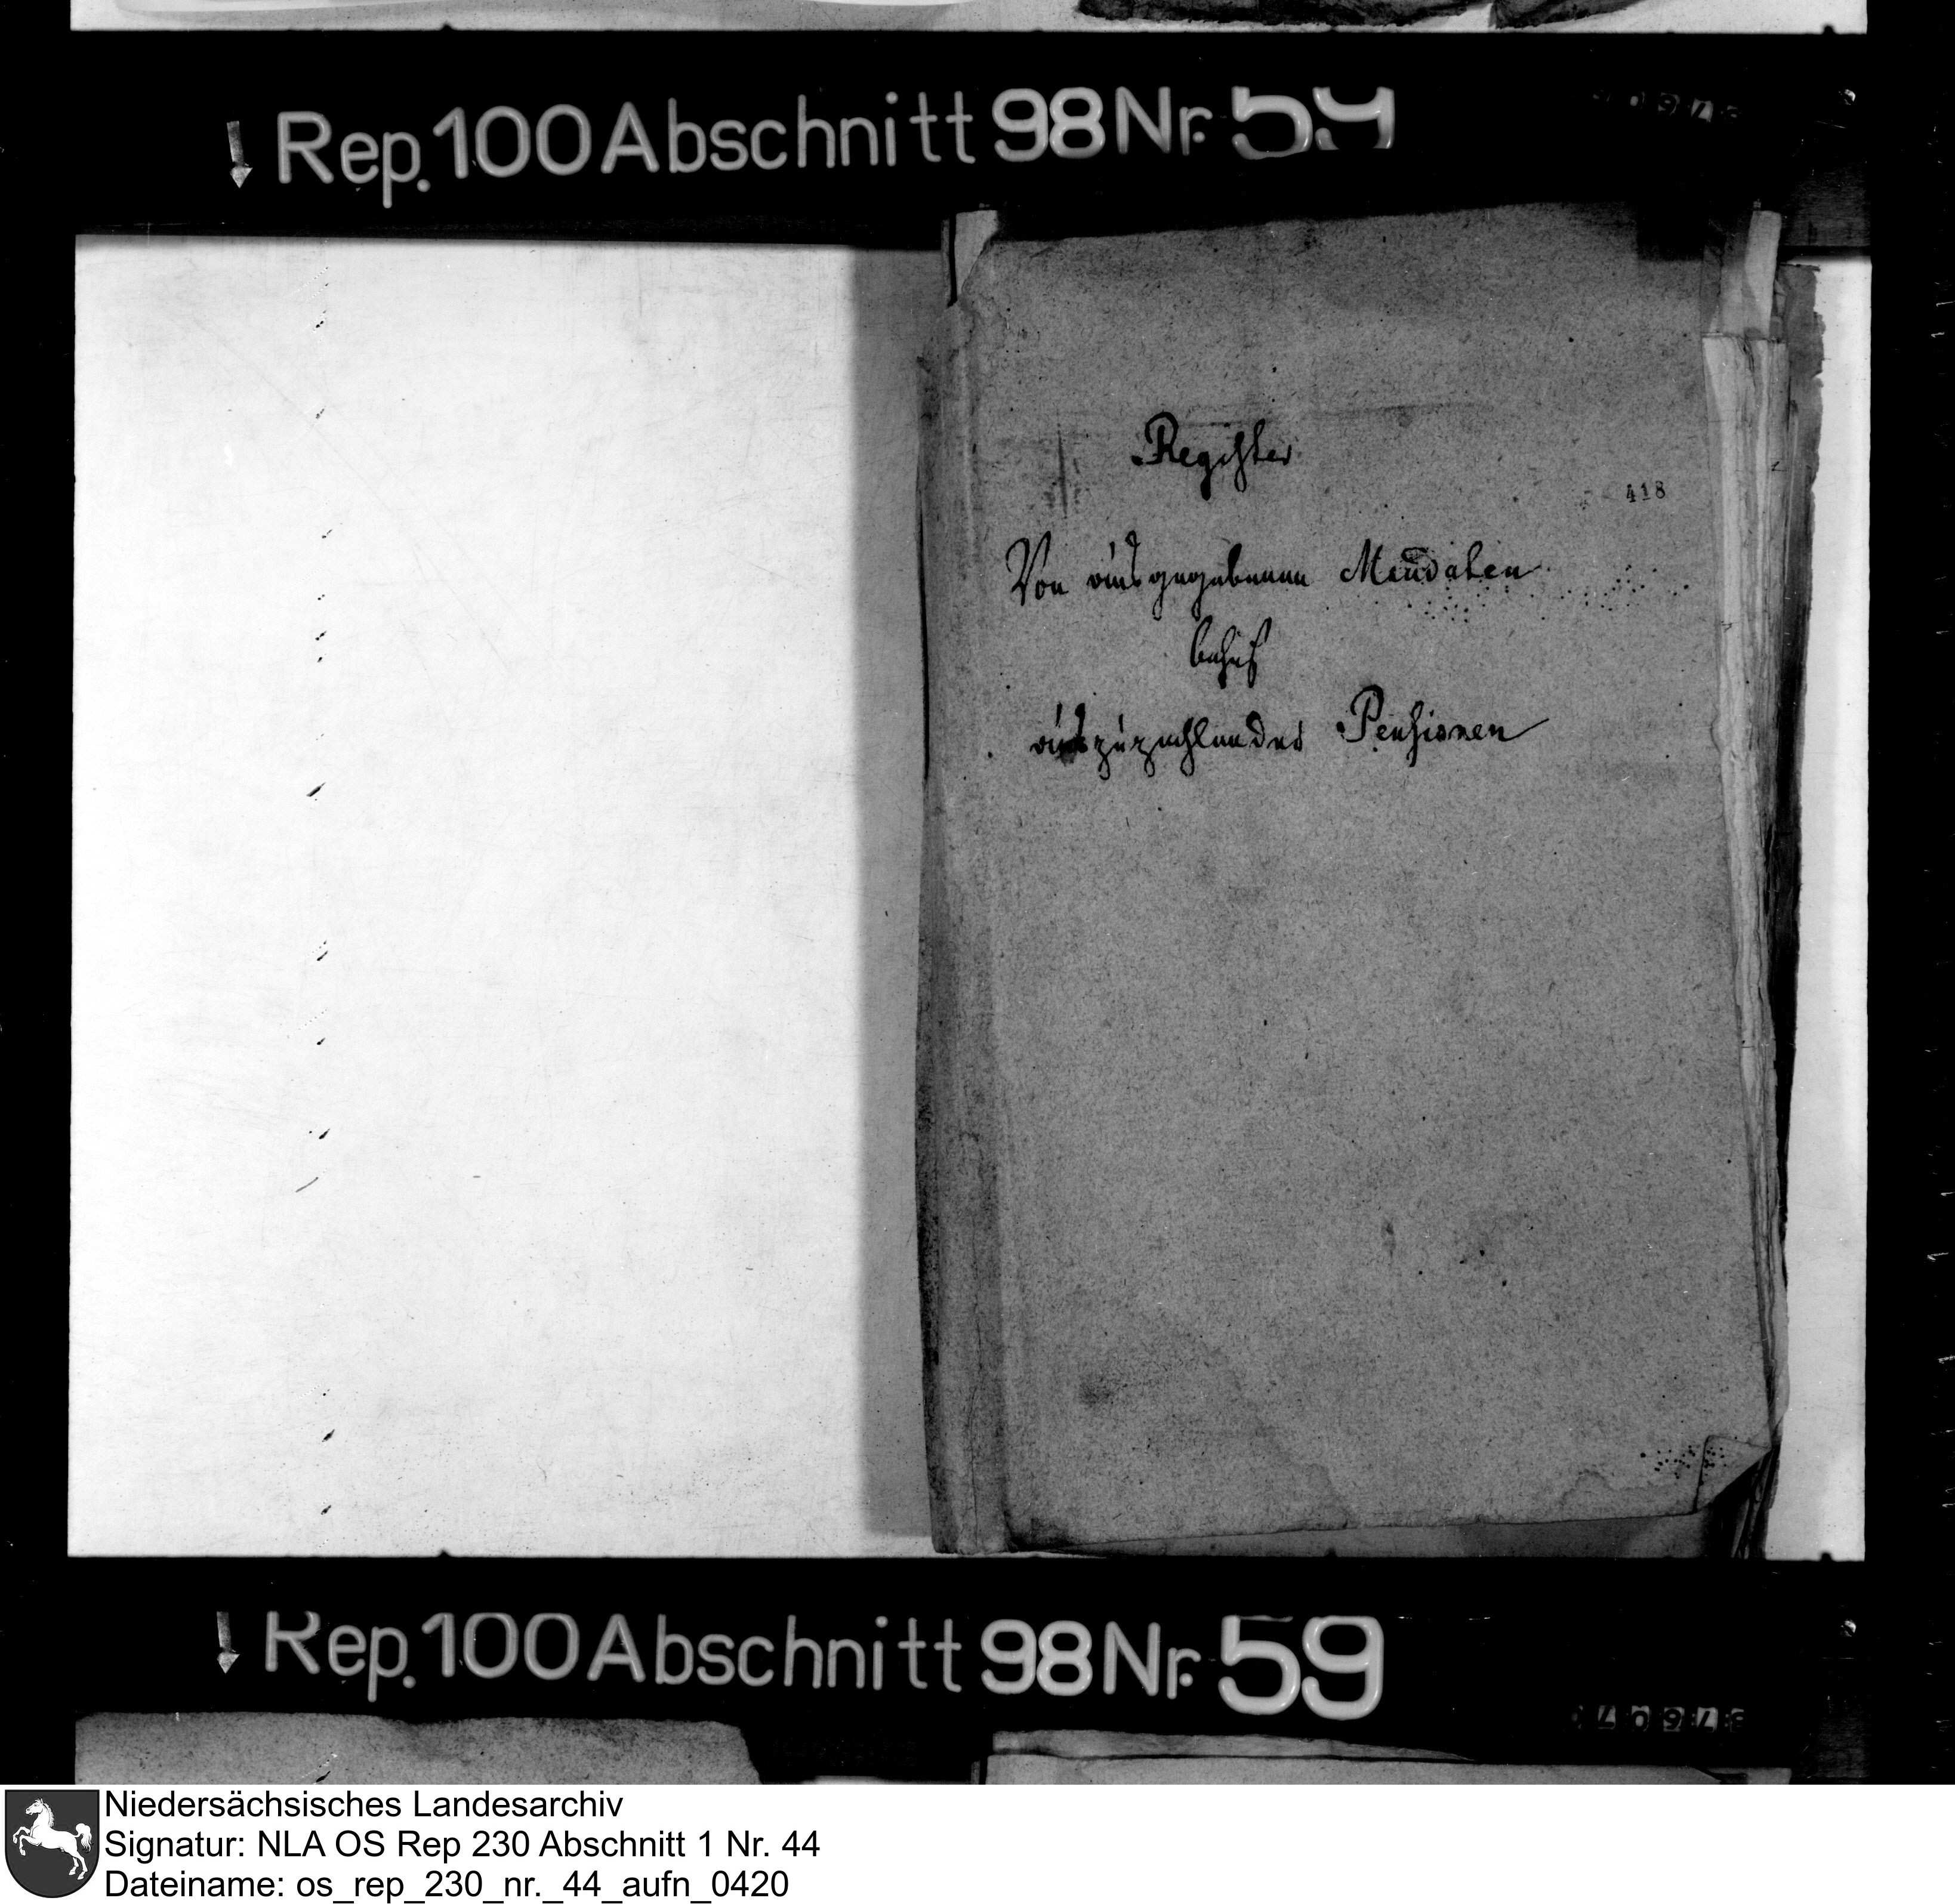 Rep. 100 Abschnitt 98 Nr. 59
Register
418
Von ausgegebenen Mendaten
behuf
auszuzahlender Pensionen
Rep. 100 Abschnitt 98 Nr. 59
Niedersächsisches Landesarchiv
Signatur: NLA OS Rep 230 Abschnitt 1 Nr. 44
Dateiname: os_rep_230_nr._44_aufn_0420